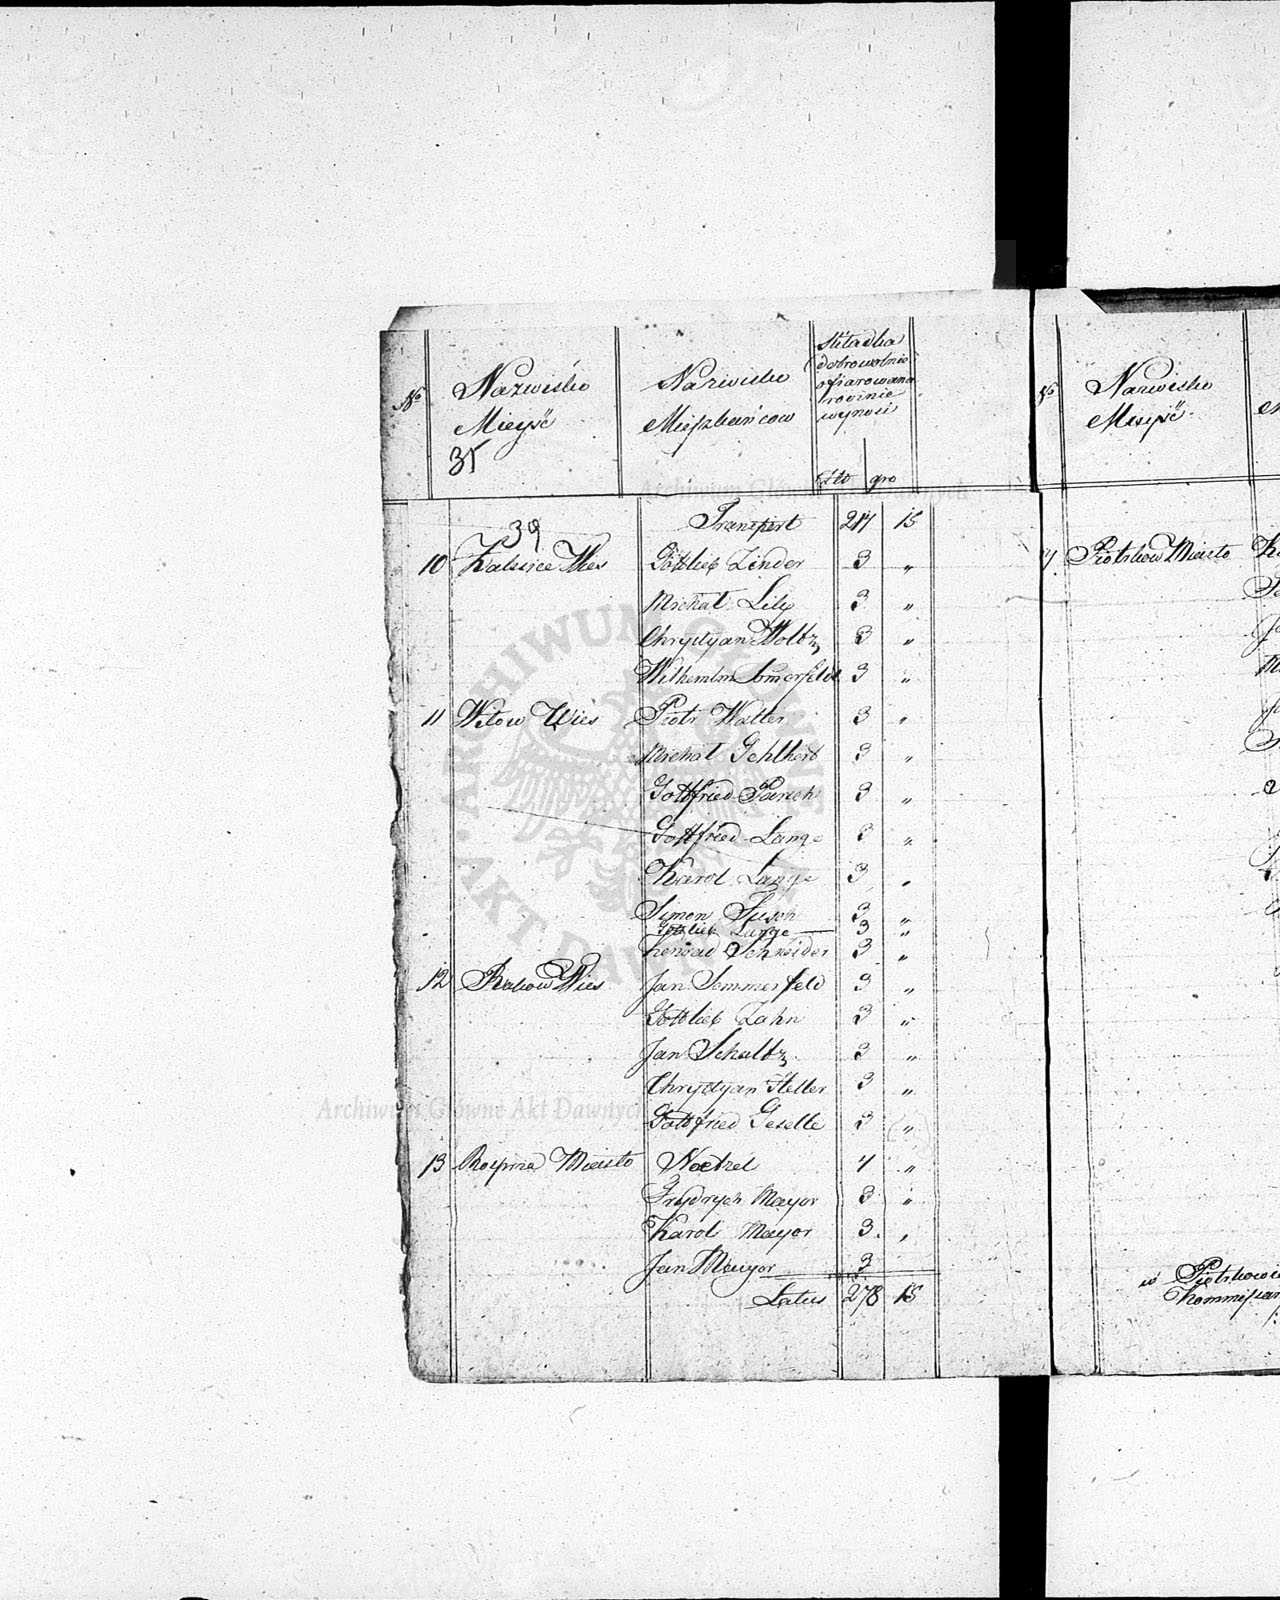 No
Nazwisko
Mieysć
35
Nazwisko
Mieszkańcow
Składka
dobrowolnie
ofiarowana
rocznie
wynosi
Zło gro
39
Transport 214 15
10 Wies Gottlieb Zinder 3 "
Michał 3 "
Chrystyan Woltz 3 "
Wilhemlm Somerfeldt 3 "
11 Witow Wies Piotr Walter 3 "
Michał Gehlhert 3 "
Gottfried 3 "
Gottfried Lange 3 "
Karol Lange 3 "
Simon 3 "
Gottlieb Lange 3 "
Konrad Schneider 3 "
12 Rakow Wies Jan Sommerfeld 3 "
Gottlieb Zahn 3 "
Jan Schultz 3 "
Chrystyan Heller 3 "
Gottfried Geselle 3 "
13 Rosprza Miasto Noetzel 4 "
Frydrych Mayor 3 "
Karol Mayor 3 "
Jan Mayor 3
Latus 278 15
No
Nazwisko
Mieysć
Piotrkow Miasto
w Piotrkowie
Archiwum Główne Akt Dawnych
ARCHIWUM GŁÓWNE AKT DAWNYCH
Archiwum Główne Akt Dawnych